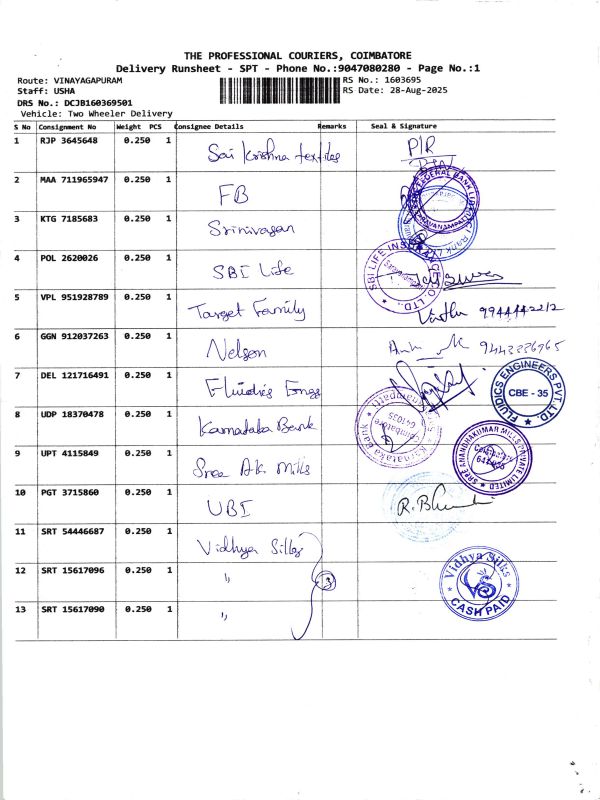 THE PROFESSIONAL COURIERS, COIMBATORE
Delivery Runsheet - SPT - Phone No.:9047080280 - Page No.:1
Route: VINAYAGAPURAM RS No.: 1603695
Staff: USHA RS Date: 28-Aug-2025
DRS No.: DCJB160369501
Vehicle: Two Wheeler Delivery
S No Consignment No Weight PCS Consignee Details Remarks Seal & Signature
1 RJP 3645648 0.250 1 Sai Krishna textiles P/R
2 MAA 711965947 0.250 1 FB
3 KTG 7185683 0.250 1 Srinivasan
4 POL 2620026 0.250 1 SBI Life SBI LIFE INSURANCE CO. LTD.
5 VPL 951928789 0.250 1 Target Family 9944442212
6 GGN 912037263 0.250 1 Nelson 9443336765
7 DEL 121716491 1 0.250 Fluidics Engg FLUIDICS ENGINEERS PVT. LTD. CBE - 35
8 UDP 18370478 0.250 1 Karnataka Bank Karnataka Bank Coimbatore 641035
9 UPT 4115849 0.250 1 Sree AK Mills SREE ANANDHAKUMAR MILLS PRIVATE LIMITED
10 PGT 3715860 0.250 1 UBI
11 SRT 54446687 0.250 1 Vidhya Silks
12 SRT 15617096 0.250 1 " 3 Vidhya Silks VS CASH PAID
13 SRT 15617090 0.250 1 "